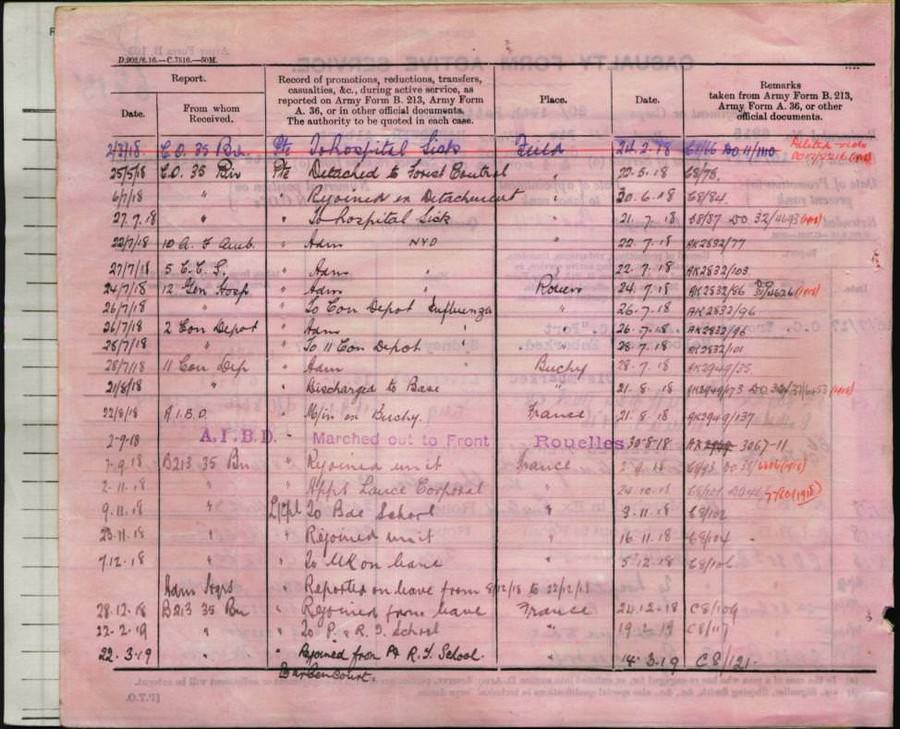 D.902/6.16.—C.7516.—50M.
Report.
Date.
From whom Received.
Record of promotions, reductions, transfers, casualties, &c., during active service, as reported on Army Form B. 213, Army Form A. 36, or in other official documents. The authority to be quoted in each case.
Place.
Date.
Remarks taken from Army Form B. 213, Army Form A. 36, or other official documents.
2/3/18. C.O. 35 Bn. Pte To hospital Sick Field 24.2.18 C8/66 DO 11/1110
25/5/18 C.O. 35 Bn Pte Detached to Forest Control " 22.5.18 C8/78.
6/7/18 " " Rejoined ex Detachment " 30.6.18 C8/84.
27.7.18 " " To hospital Sick " 21.7.18 C8/87 DO 32/4693
22/7/18 10 A. F Amb. " Adm NYD " 22.7.18 AK2832/77
27/7/18 5 C.C.S. " Adm " " 22.7.18 AK2832/103.
24/7/18 12 Gen Hosp " Adm " Rouen 24.7.18 AK2832/86
26/7/18 " " To Con Depot Influenza " 26.7.18 AK2832/96
26/7/18 2 Con Depot " Adm " " 26.7.18 AK2832/96
28/7/18 " " To 11 Con Depot " " 28.7.18 AK2832/101
28/7/18 11 Con Dep " Adm " Buchy 28.7.18 AK2949/35.
21/8/18 " " Discharged to Base " 21.8.18
22/8/18 A.I.B.D. " M/in ex Buchy. France 21.8.18 AK2949/137
2-9-18 A.I.B.D. " Marched out to Front Rouelles 30.8.18 AK 3067-11
7.9.18 B213 35 Bn " Rejoined unit France 2.9.18 C8/93
2.11.18 " " Appt Lance Corporal " 24.10.18 C8/101
9.11.18 " L/Cpl To Bde School " 3.11.18 C8/102
23.11.18 " " Rejoined unit " 16.11.18 C8/104
7.12.18 " " To UK on leave " 5.12.18 C8/106
Adm Hqrs Reported on leave from 8/12/18 to 22/12/18
28.12.18 B213 35 Bn " Rejoined from leave France 24.12.18 C8/109
22-2-19 " " To P. & R.T. School " 19.2.19 C8/117
22.3.19 " " Rejoined from P & R.T. School. 14.3.19 C8/121.
Barbencourt.